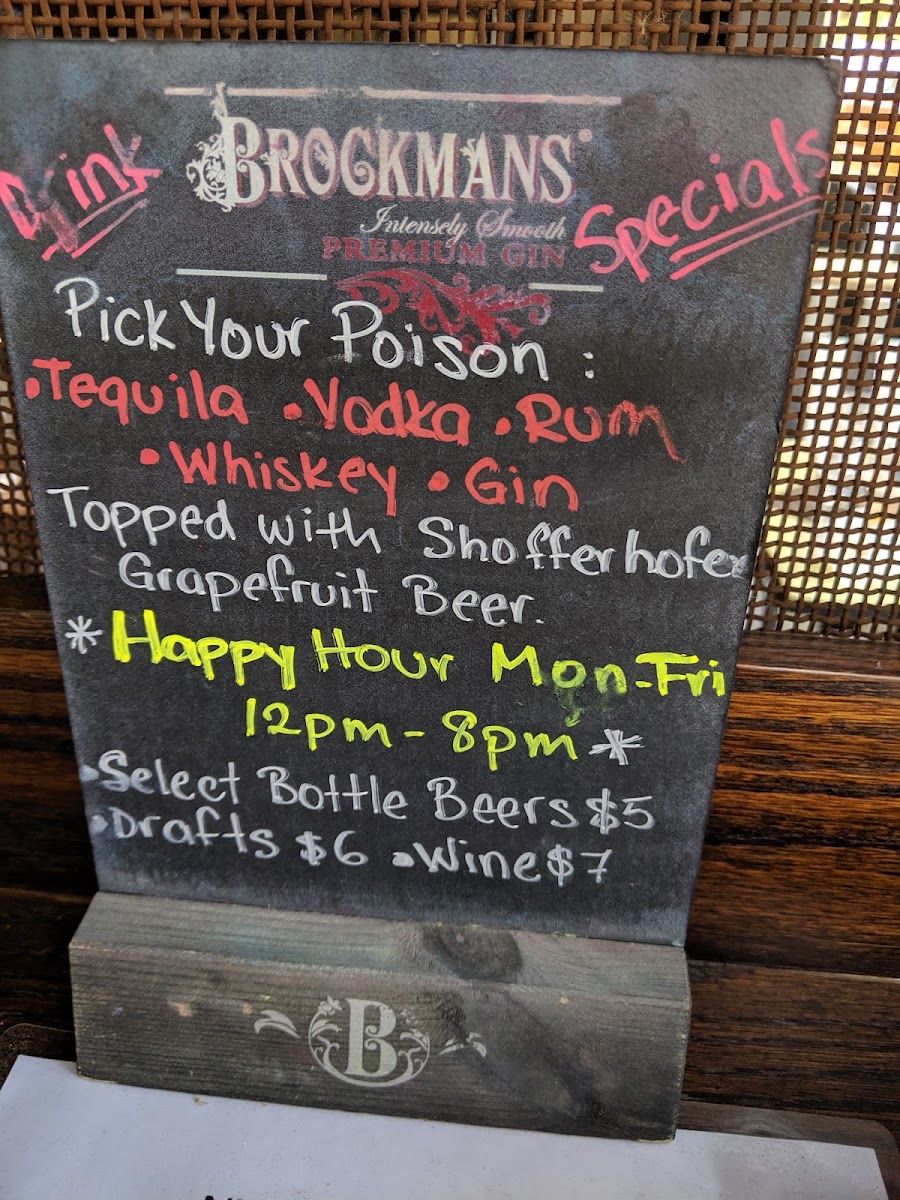 BROCKMANS®
Intensely Smooth
PREMIUM GIN
Drink Specials
Pick Your Poison :
•Tequila •Vodka •Rum
•Whiskey •Gin
Topped with Shofferhofer
Grapefruit Beer.
*Happy Hour Mon-Fri
12pm-8pm*
•Select Bottle Beers $5
•Drafts $6 •Wine $7
B